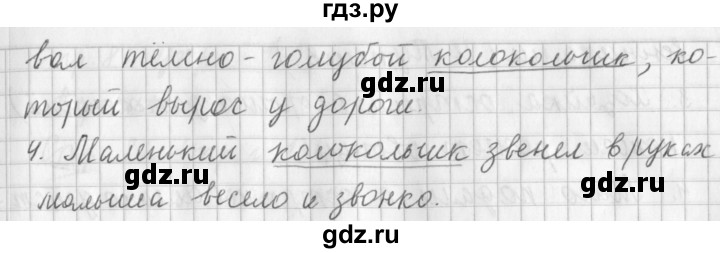 гдз.ру
вал тёмно-голубой колокольчик, ко-
gdz.ru
торый вырос у дороги.
4. Маленький колокольчик звенел в руках
gdz.ru
gdz.ru
малыша весело и звонко.
gdz.ru